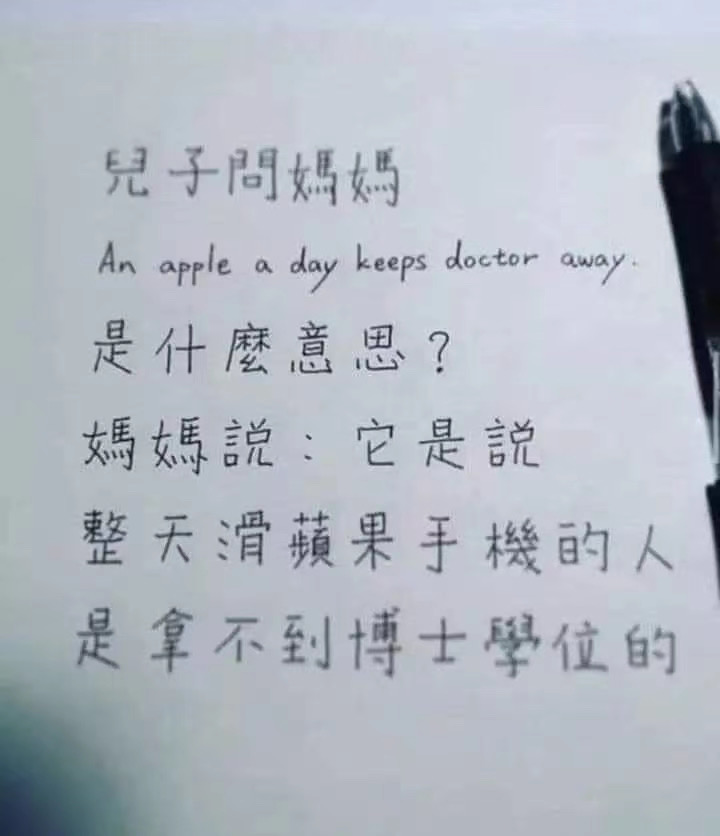 兒子問媽媽
An apple a day keeps doctor away.
是什麼意思？
媽媽説：它是説
整天滑蘋果手機的人
是拿不到博士學位的